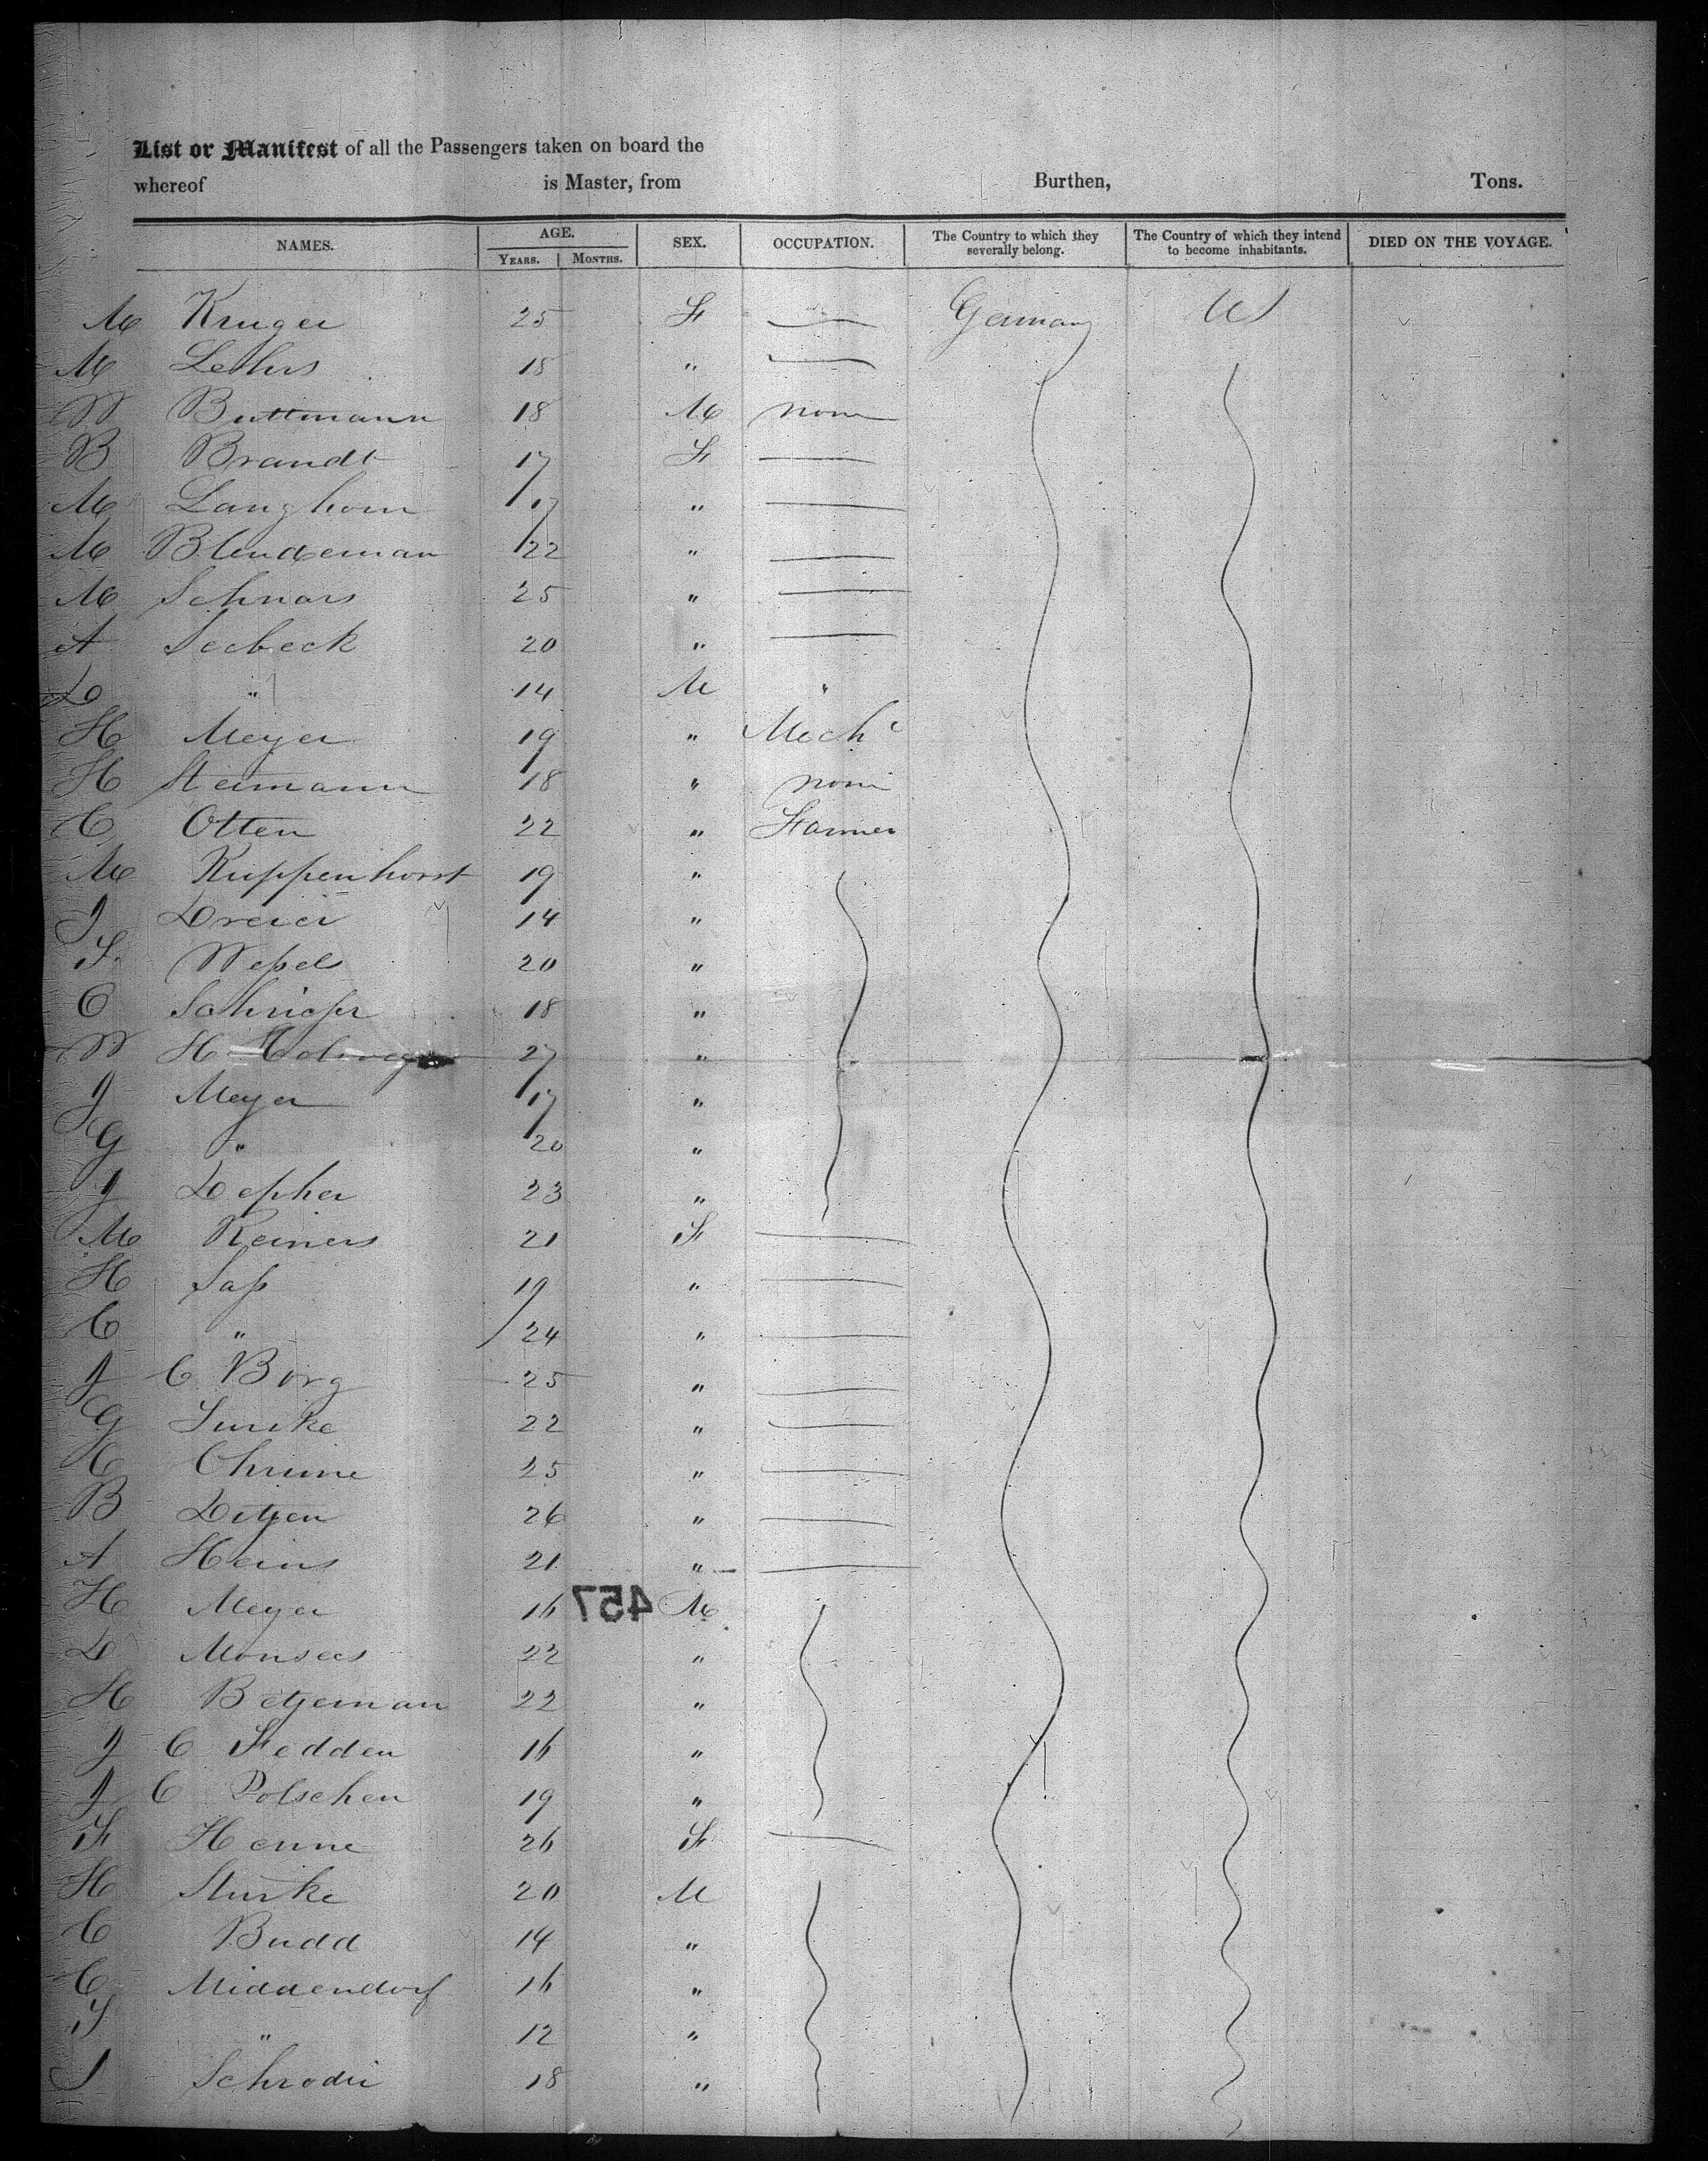 List or Manifest of all the Passengers taken on board the
whereof is Master, from Burthen, Tons.
NAMES. AGE. SEX. OCCUPATION. The Country to which they severally belong. The Country of which they intend to become inhabitants. DIED ON THE VOYAGE.
YEARS. MONTHS.
M Kruger 25 F — Germany US
M Lehrs 18 " —
W Buttmann 18 M none
B Brandt 17 F —
M Langhorn 17 " —
M Blendeman 22 " —
M Schnars 25 " —
A Seebeck 20 " —
D " 14 M "
H Meyer 19 " Mechc
H Steimann 18 " none
C Otten 22 " Farmer
M Kuppenhorst 19 "
J Dreier 14 "
F Weſsels 20 "
C 18 "
W H 27 "
J Meyer 17 "
G " 20 "
J 23 "
M Reiners 21 F —
H Saſs 19 " —
C " 24 " —
J C Borg 25 " —
G 22 " —
C 25 " —
B Detjen 26 " —
A Heins 21 " —
H Meyer 16 M
457
D Monsees 22 "
H Betjeman 22 "
J C Fedden 16 "
J C Polschen 19 "
F Henne 26 F —
H Sturke 20 M
C Budd 14 "
C Middendorf 16 "
F " 12 "
J Schroder 18 "